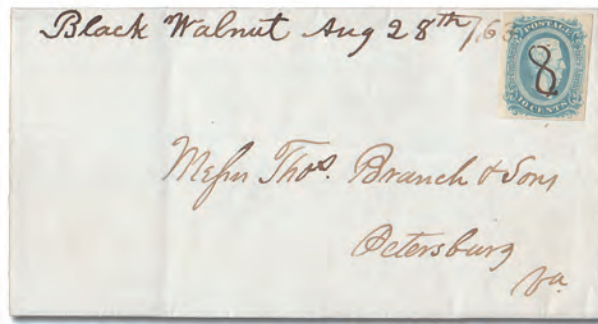 Black Walnut Aug 28th /63
POSTAGE
8
10 CENTS
Messrs Thos. Branch & Sons
Petersburg
Va.